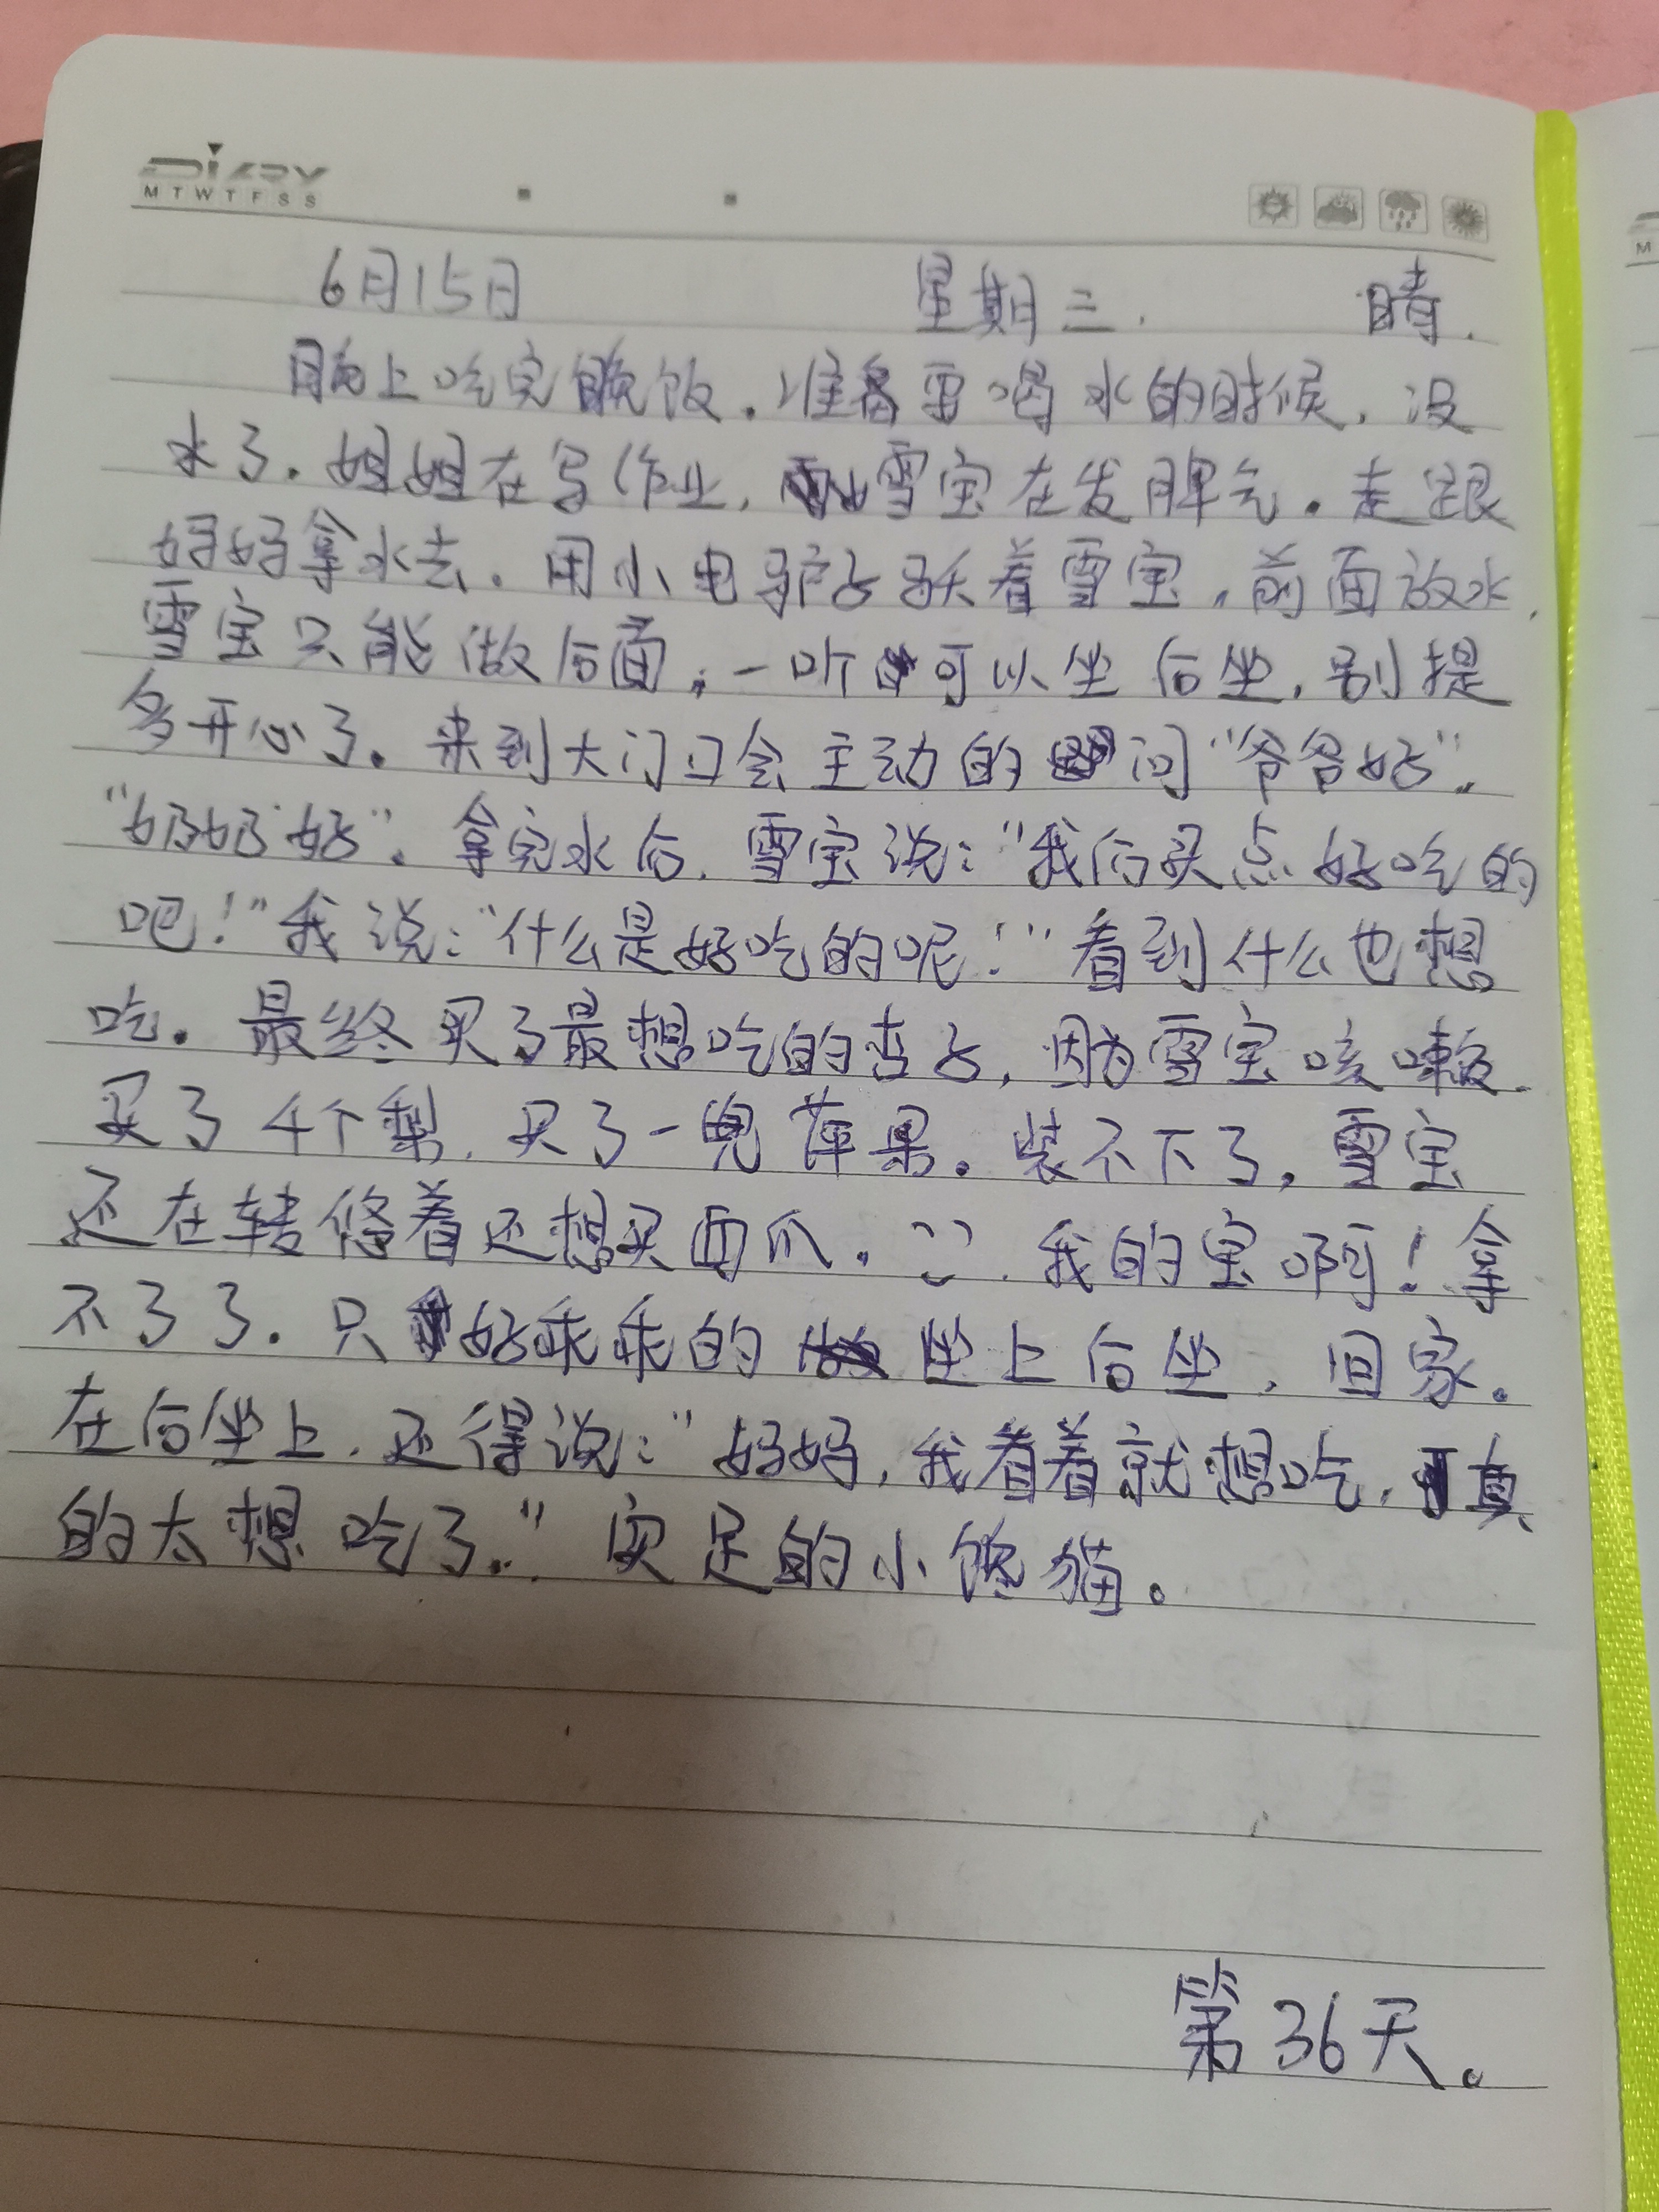 DIARY
M T W T F S S
6月15日 星期三. 晴.
晚上吃完晚饭.准备要喝水的时候,没
水了.姐姐在写作业,雪宝在发脾气.走跟
妈妈拿水去.用小电驴子驮着雪宝,前面放水,
雪宝只能做后面,一听可以坐后坐,别提
多开心了.来到大门口会主动的问“爷爷好”.
“奶奶好”.拿完水后.雪宝说:“我们买点好吃的
吧!”我说:“什么是好吃的呢!”看到什么也想
吃.最终买了最想吃的杏子,因为雪宝咳嗽.
买了4个梨.买了一兜苹果.装不下了,雪宝
还在转悠着还想买西瓜.我的宝啊!拿
不了了.只好乖乖的坐上后坐,回家.
在后坐上.还得说:“妈妈,我看着就想吃,真
的太想吃了.”实足的小馋猫。
第36天。